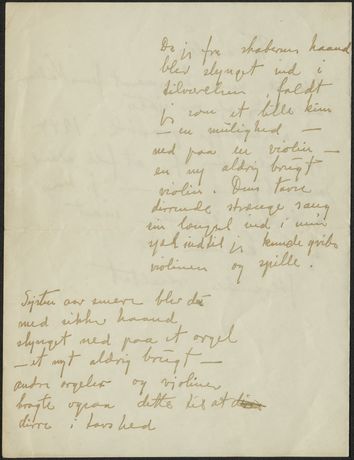 Da jeg fra skaberens haand
blev slynget ud i
tilværelsen, faldt
jeg som et lille kim
– en mulighed –
ned paa en violin –
en ny aldrig brugt
violin. Dens tavse
dirrende strenge sang
sin længsel ind i min
sjæl indtil jeg kunde gribe
violinen og spille.
aar senere blev du
med sikker haand
slynget ned paa et orgel
– et nyt aldrig brugt –
andre orgeler og violiner
bragte ogsaa dette til at
dirre i tavshed